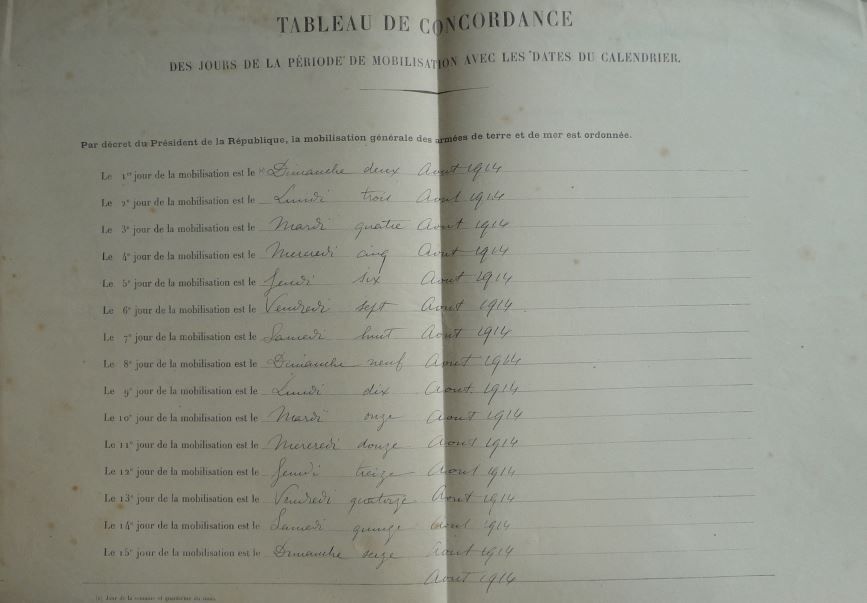 TABLEAU DE CONCORDANCE
DES JOURS DE LA PÉRIODE DE MOBILISATION AVEC LES DATES DU CALENDRIER.
Par décret du Président de la République, la mobilisation générale des armées de terre et de mer est ordonnée.
Le 1er jour de la mobilisation est le (1) Dimanche deux Aout 1914
Le 2e jour de la mobilisation est le Lundi trois Aout 1914
Le 3e jour de la mobilisation est le Mardi quatre Aout 1914
Le 4e jour de la mobilisation est le Mercredi cinq Aout 1914
Le 5e jour de la mobilisation est le Jeudi six Aout 1914
Le 6e jour de la mobilisation est le Vendredi sept Aout 1914
Le 7e jour de la mobilisation est le Samedi huit Aout 1914
Le 8e jour de la mobilisation est le Dimanche neuf Aout 1914
Le 9e jour de la mobilisation est le Lundi dix Aout 1914
Le 10e jour de la mobilisation est le Mardi onze Aout 1914
Le 11e jour de la mobilisation est le Mercredi douze Aout 1914
Le 12e jour de la mobilisation est le Jeudi treize Aout 1914
Le 13e jour de la mobilisation est le Vendredi quatorze Aout 1914
Le 14e jour de la mobilisation est le Samedi quinze Aout 1914
Le 15e jour de la mobilisation est le Dimanche seize Aout 1914
Aout 1914
(1) Jour de la semaine et quantième du mois.